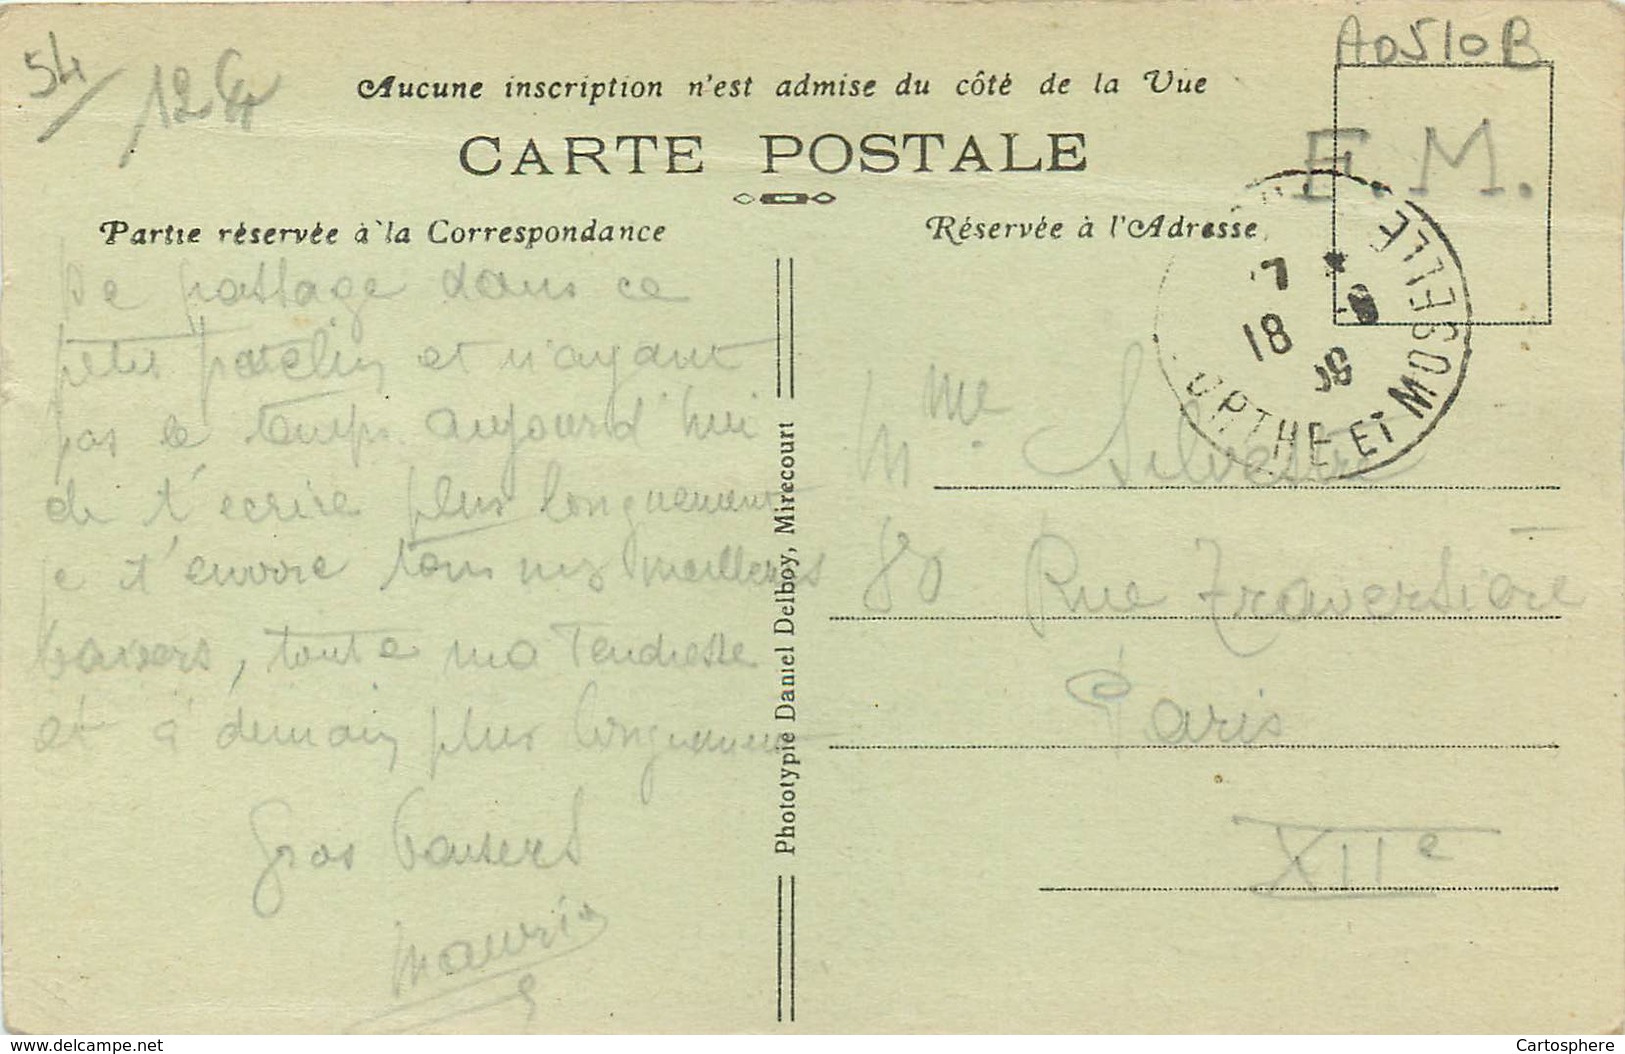 54
12 €
A0510B
Aucune inscription n'est admise du côté de la Vue
F. M.
CARTE POSTALE
Partie réservée à la Correspondance
Réservée à l'Adresse
7 * 8
18 39
URTHE ET MOSELLE
De passage dans ce
petit patelin et n'ayant
pas le temps aujourd'hui
de t'écrire plus longuement
je t'envoie tous mes meilleurs
baisers, toute ma tendresse
et à demain plus longuement
Gros baisers
Maurice
Phototypie Daniel Delboy, Mirecourt
Mme Silvestre
80 Rue Traversière
Paris
XIIe
www.delcampe.net
Cartosphere